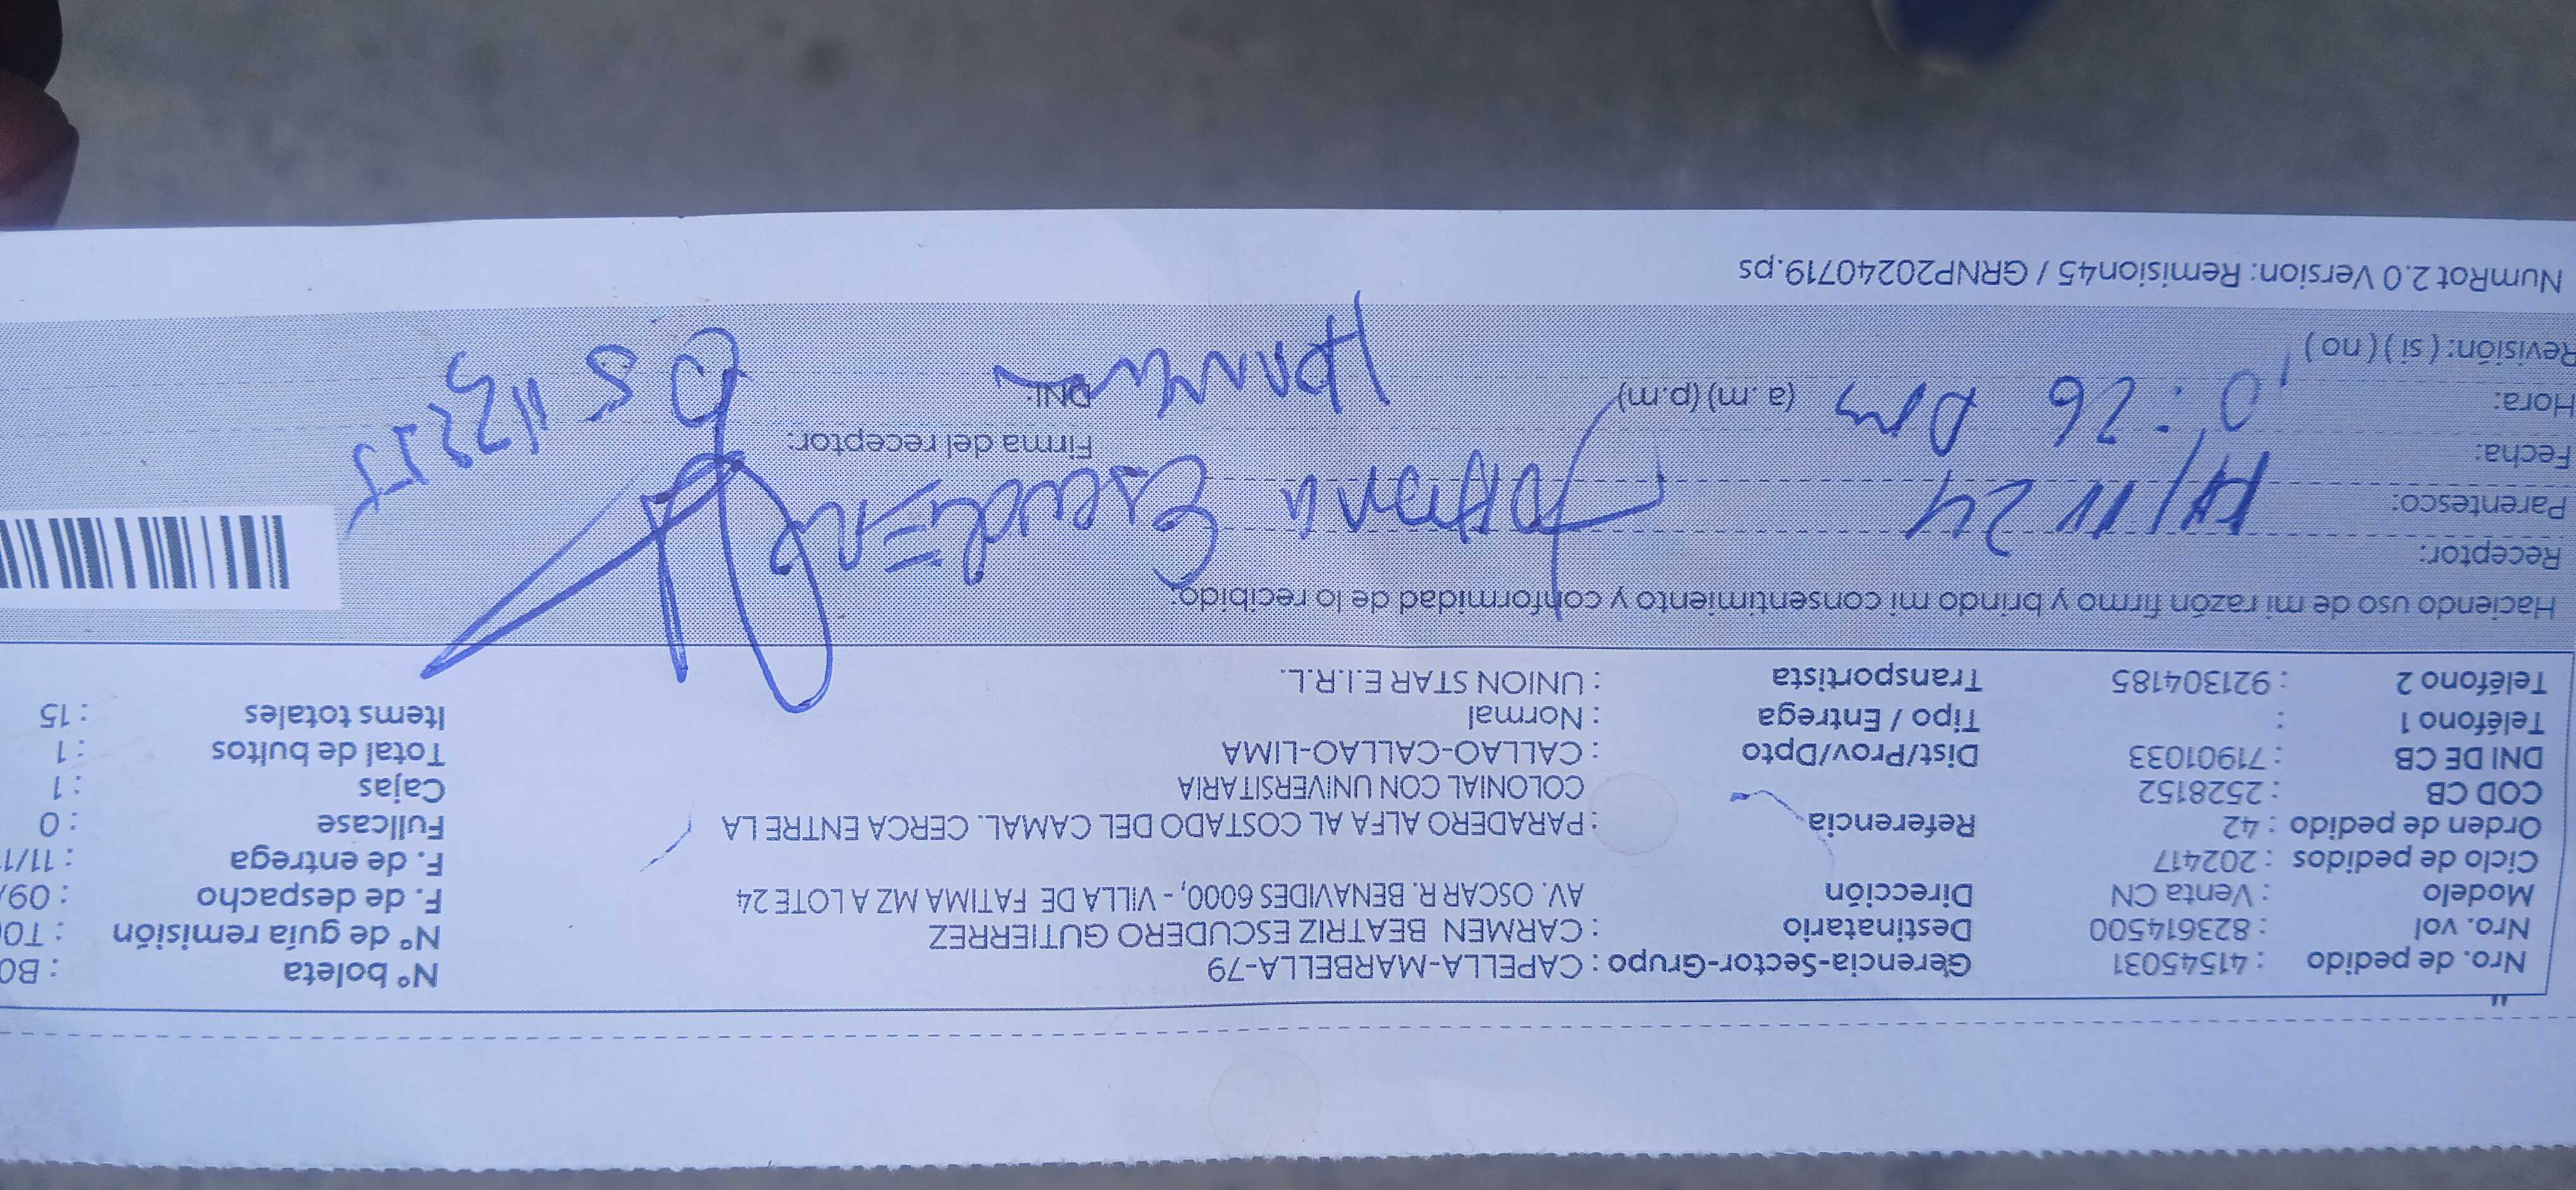 Nro. de pedido : 41545031 Gerencia-Sector-Grupo : CAPELLA-MARBELLA-79 Nº boleta : B0
Nro. vol : 823614500 Destinatario : CARMEN BEATRIZ ESCUDERO GUTIERREZ Nº de guía remisión : T00
Modelo : Venta CN Dirección AV. OSCAR R. BENAVIDES 6000, - VILLA DE FATIMA MZ A LOTE 24 F. de despacho : 09/
Ciclo de pedidos : 202417 F. de entrega : 11/1
Orden de pedido : 42 Referencia : PARADERO ALFA AL COSTADO DEL CAMAL. CERCA ENTRE LA Fullcase : 0
COD CB : 2528152 COLONIAL CON UNIVERSITARIA Cajas : 1
DNI DE CB : 71901033 Dist/Prov/Dpto : CALLAO-CALLAO-LIMA Total de bultos : 1
Teléfono 1 : Tipo / Entrega : Normal Items totales : 15
Teléfono 2 : 921304185 Transportista : UNION STAR E.I.R.L.
Haciendo uso de mi razón firmo y brindo mi consentimiento y conformidad de lo recibido:
Receptor:
Parentesco: 11 24
Fecha: Firma del receptor:
Hora: : 26 (a .m) (p.m) DNI:
Revisión: ( si ) ( no )
NumRot 2.0 Version: Remision45 / GRNP20240719.ps